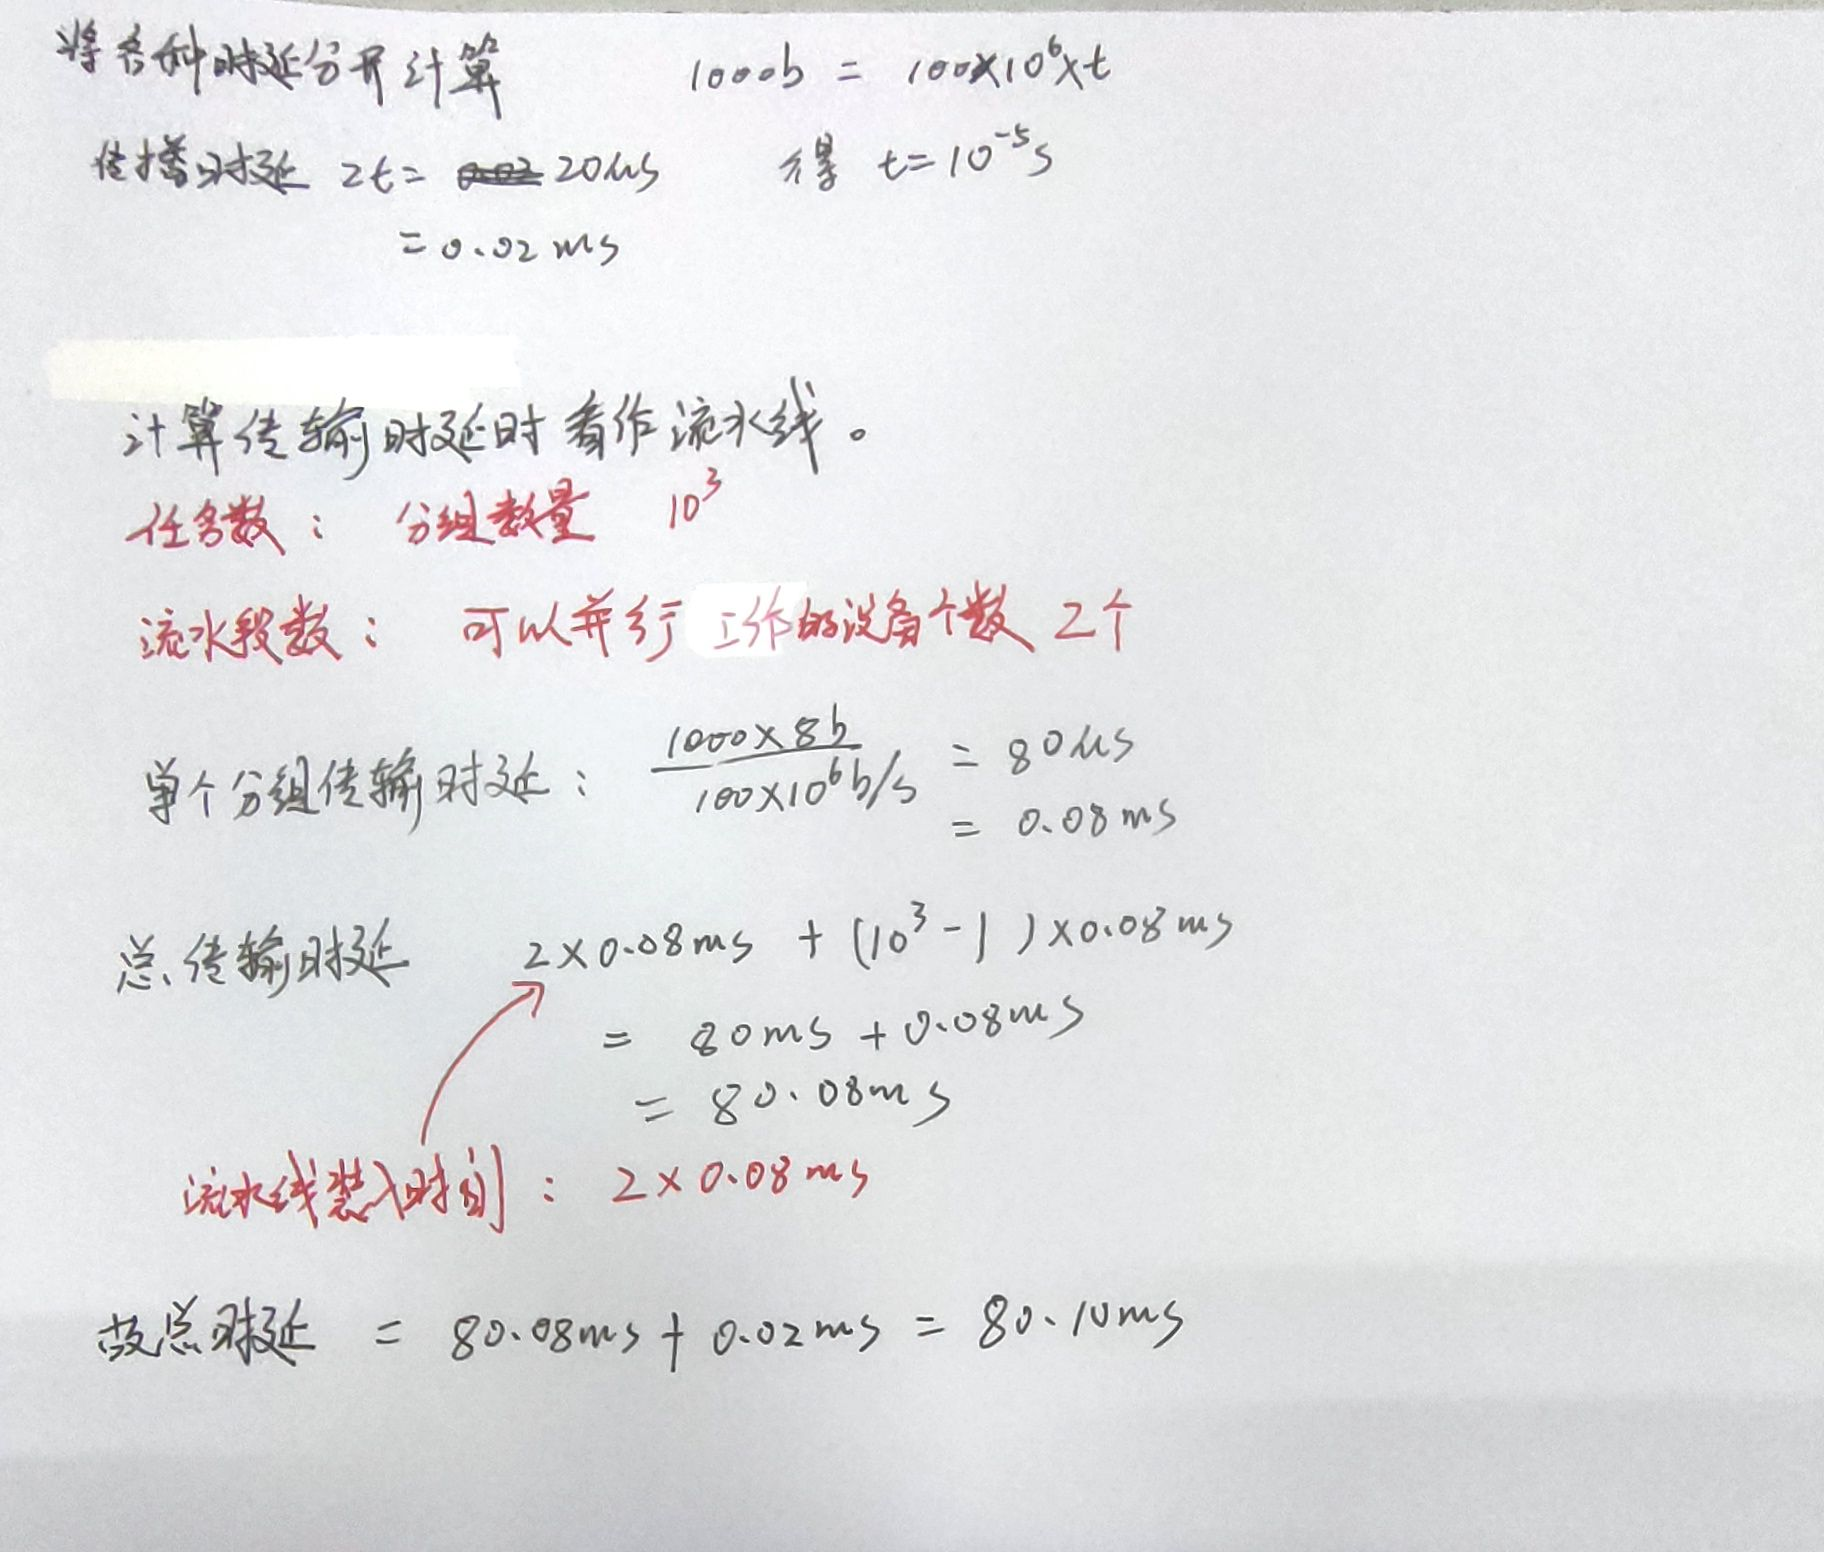 将各种时延分开计算 1000b = 100×10⁶×t
传播时延 2t = 20μs 得 t=10⁻⁵s
= 0.02ms
计算传输时延时看作流水线。
任务数： 分组数量 10³
流水段数： 可以并行工作的设备个数 2个
单个分组传输时延： 1000×8b / 100×10⁶b/s = 80μs
= 0.08ms
总传输时延 2×0.08ms + (10³-1)×0.08ms
= 80ms + 0.08ms
= 80.08ms
流水线装入时间： 2×0.08ms
故总时延 = 80.08ms + 0.02ms = 80.10ms